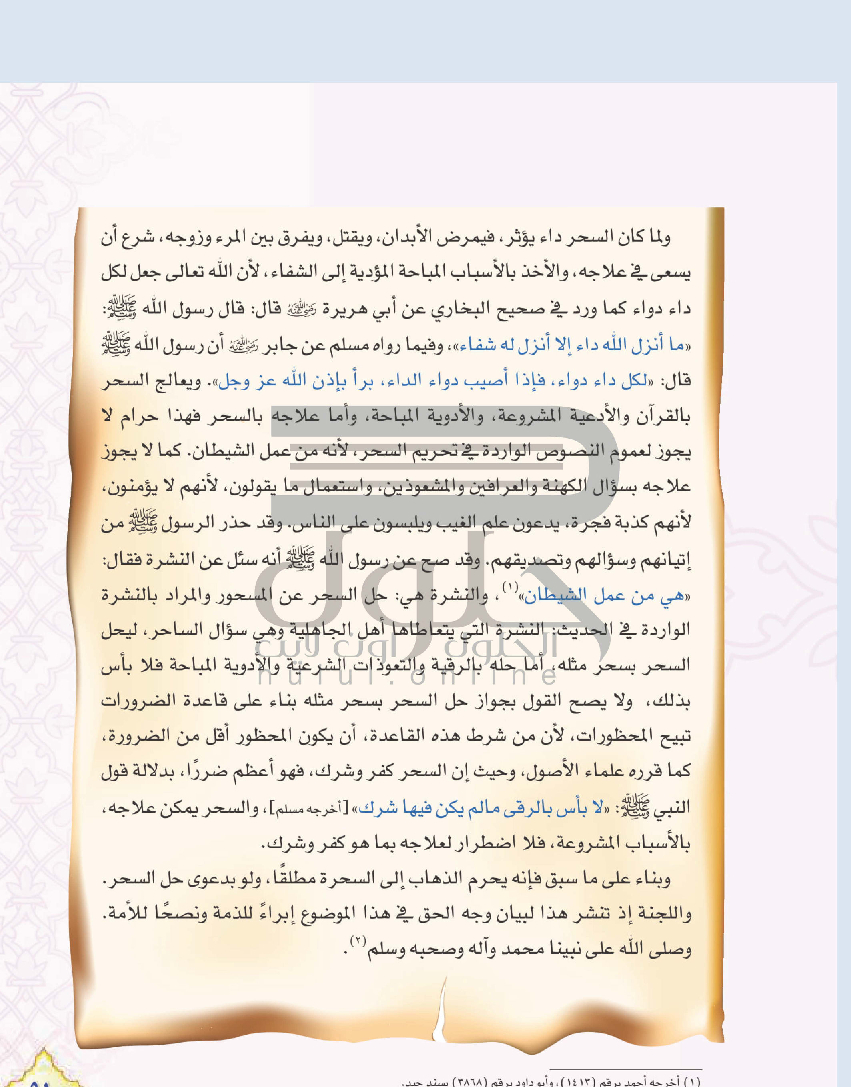 ولما كان السحر داء يؤثر، فيمرض الأبدان، ويقتل، ويفرق بين المرء وزوجه، شرع أن
يسعى في علاجه، والأخذ بالأسباب المباحة المؤدية إلى الشفاء، لأن الله تعالى جعل لكل
داء دواء كما ورد في صحيح البخاري عن أبي هريرة رضي الله عنه قال: قال رسول الله ﷺ:
«ما أنزل الله داء إلا أنزل له شفاء»، وفيما رواه مسلم عن جابر رضي الله عنه أن رسول الله ﷺ
قال: «لكل داء دواء، فإذا أصيب دواء الداء، برأ بإذن الله عز وجل». ويعالج السحر
بالقرآن والأدعية المشروعة، والأدوية المباحة، وأما علاجه بالسحر فهذا حرام لا
يجوز لعموم النصوص الواردة في تحريم السحر، لأنه من عمل الشيطان. كما لا يجوز
علاجه بسؤال الكهنة والعرافين والمشعوذين، واستعمال ما يقولون، لأنهم لا يؤمنون،
لأنهم كذبة فجرة، يدعون علم الغيب ويلبسون على الناس. وقد حذر الرسول ﷺ من
إتيانهم وسؤالهم وتصديقهم. وقد صح عن رسول الله ﷺ أنه سئل عن النشرة فقال:
«هي من عمل الشيطان»(١)، والنشرة هي: حل السحر عن المسحور والمراد بالنشرة
الواردة في الحديث: النشرة التي يتعاطاها أهل الجاهلية وهي سؤال الساحر، ليحل
السحر بسحر مثله، أما حله بالرقية والتعوذات الشرعية والأدوية المباحة فلا بأس
بذلك، ولا يصح القول بجواز حل السحر بسحر مثله بناء على قاعدة الضرورات
تبيح المحظورات، لأن من شرط هذه القاعدة، أن يكون المحظور أقل من الضرورة،
كما قرره علماء الأصول، وحيث إن السحر كفر وشرك، فهو أعظم ضررًا، بدلالة قول
النبي ﷺ: «لا بأس بالرقى مالم يكن فيها شرك» [أخرجه مسلم]، والسحر يمكن علاجه،
بالأسباب المشروعة، فلا اضطرار لعلاجه بما هو كفر وشرك.
وبناء على ما سبق فإنه يحرم الذهاب إلى السحرة مطلقًا، ولو بدعوى حل السحر.
واللجنة إذ تنشر هذا لبيان وجه الحق في هذا الموضوع إبراءً للذمة ونصحًا للأمة.
وصلى الله على نبينا محمد وآله وصحبه وسلم(٢).
حلول
الحلول أون لاين
hulul.online
(١) أخرجه أحمد برقم (١٤١٣)، وأبو داود برقم (٣٨٦٨) بسند جيد.